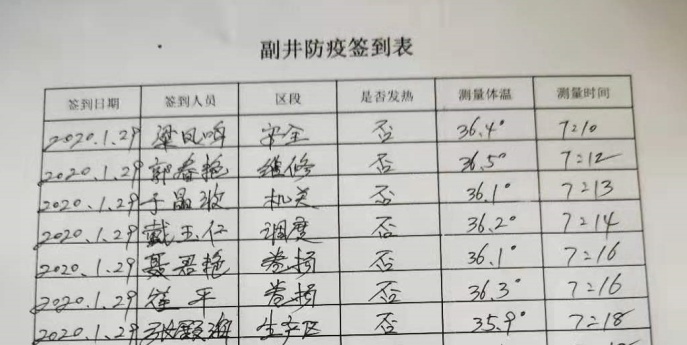 副井防疫签到表
签到日期 签到人员 区段 是否发热 测量体温 测量时间
2020.1.29 梁凤鸣 安全 否 36.4° 7:10
2020.1.29 郭春艳 维修 否 36.5° 7:12
2020.1.29 于晶波 机关 否 36.1° 7:13
2020.1.29 戴玉仁 调度 否 36.2° 7:14
2020.1.29 聂君艳 卷扬 否 36.1° 7:16
2020.1.29 平 卷扬 否 36.3° 7:16
2020.1.29 生产区 否 35.9° 7:18